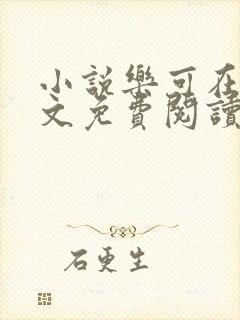 小說樂可在
文免費閱讀
石更生